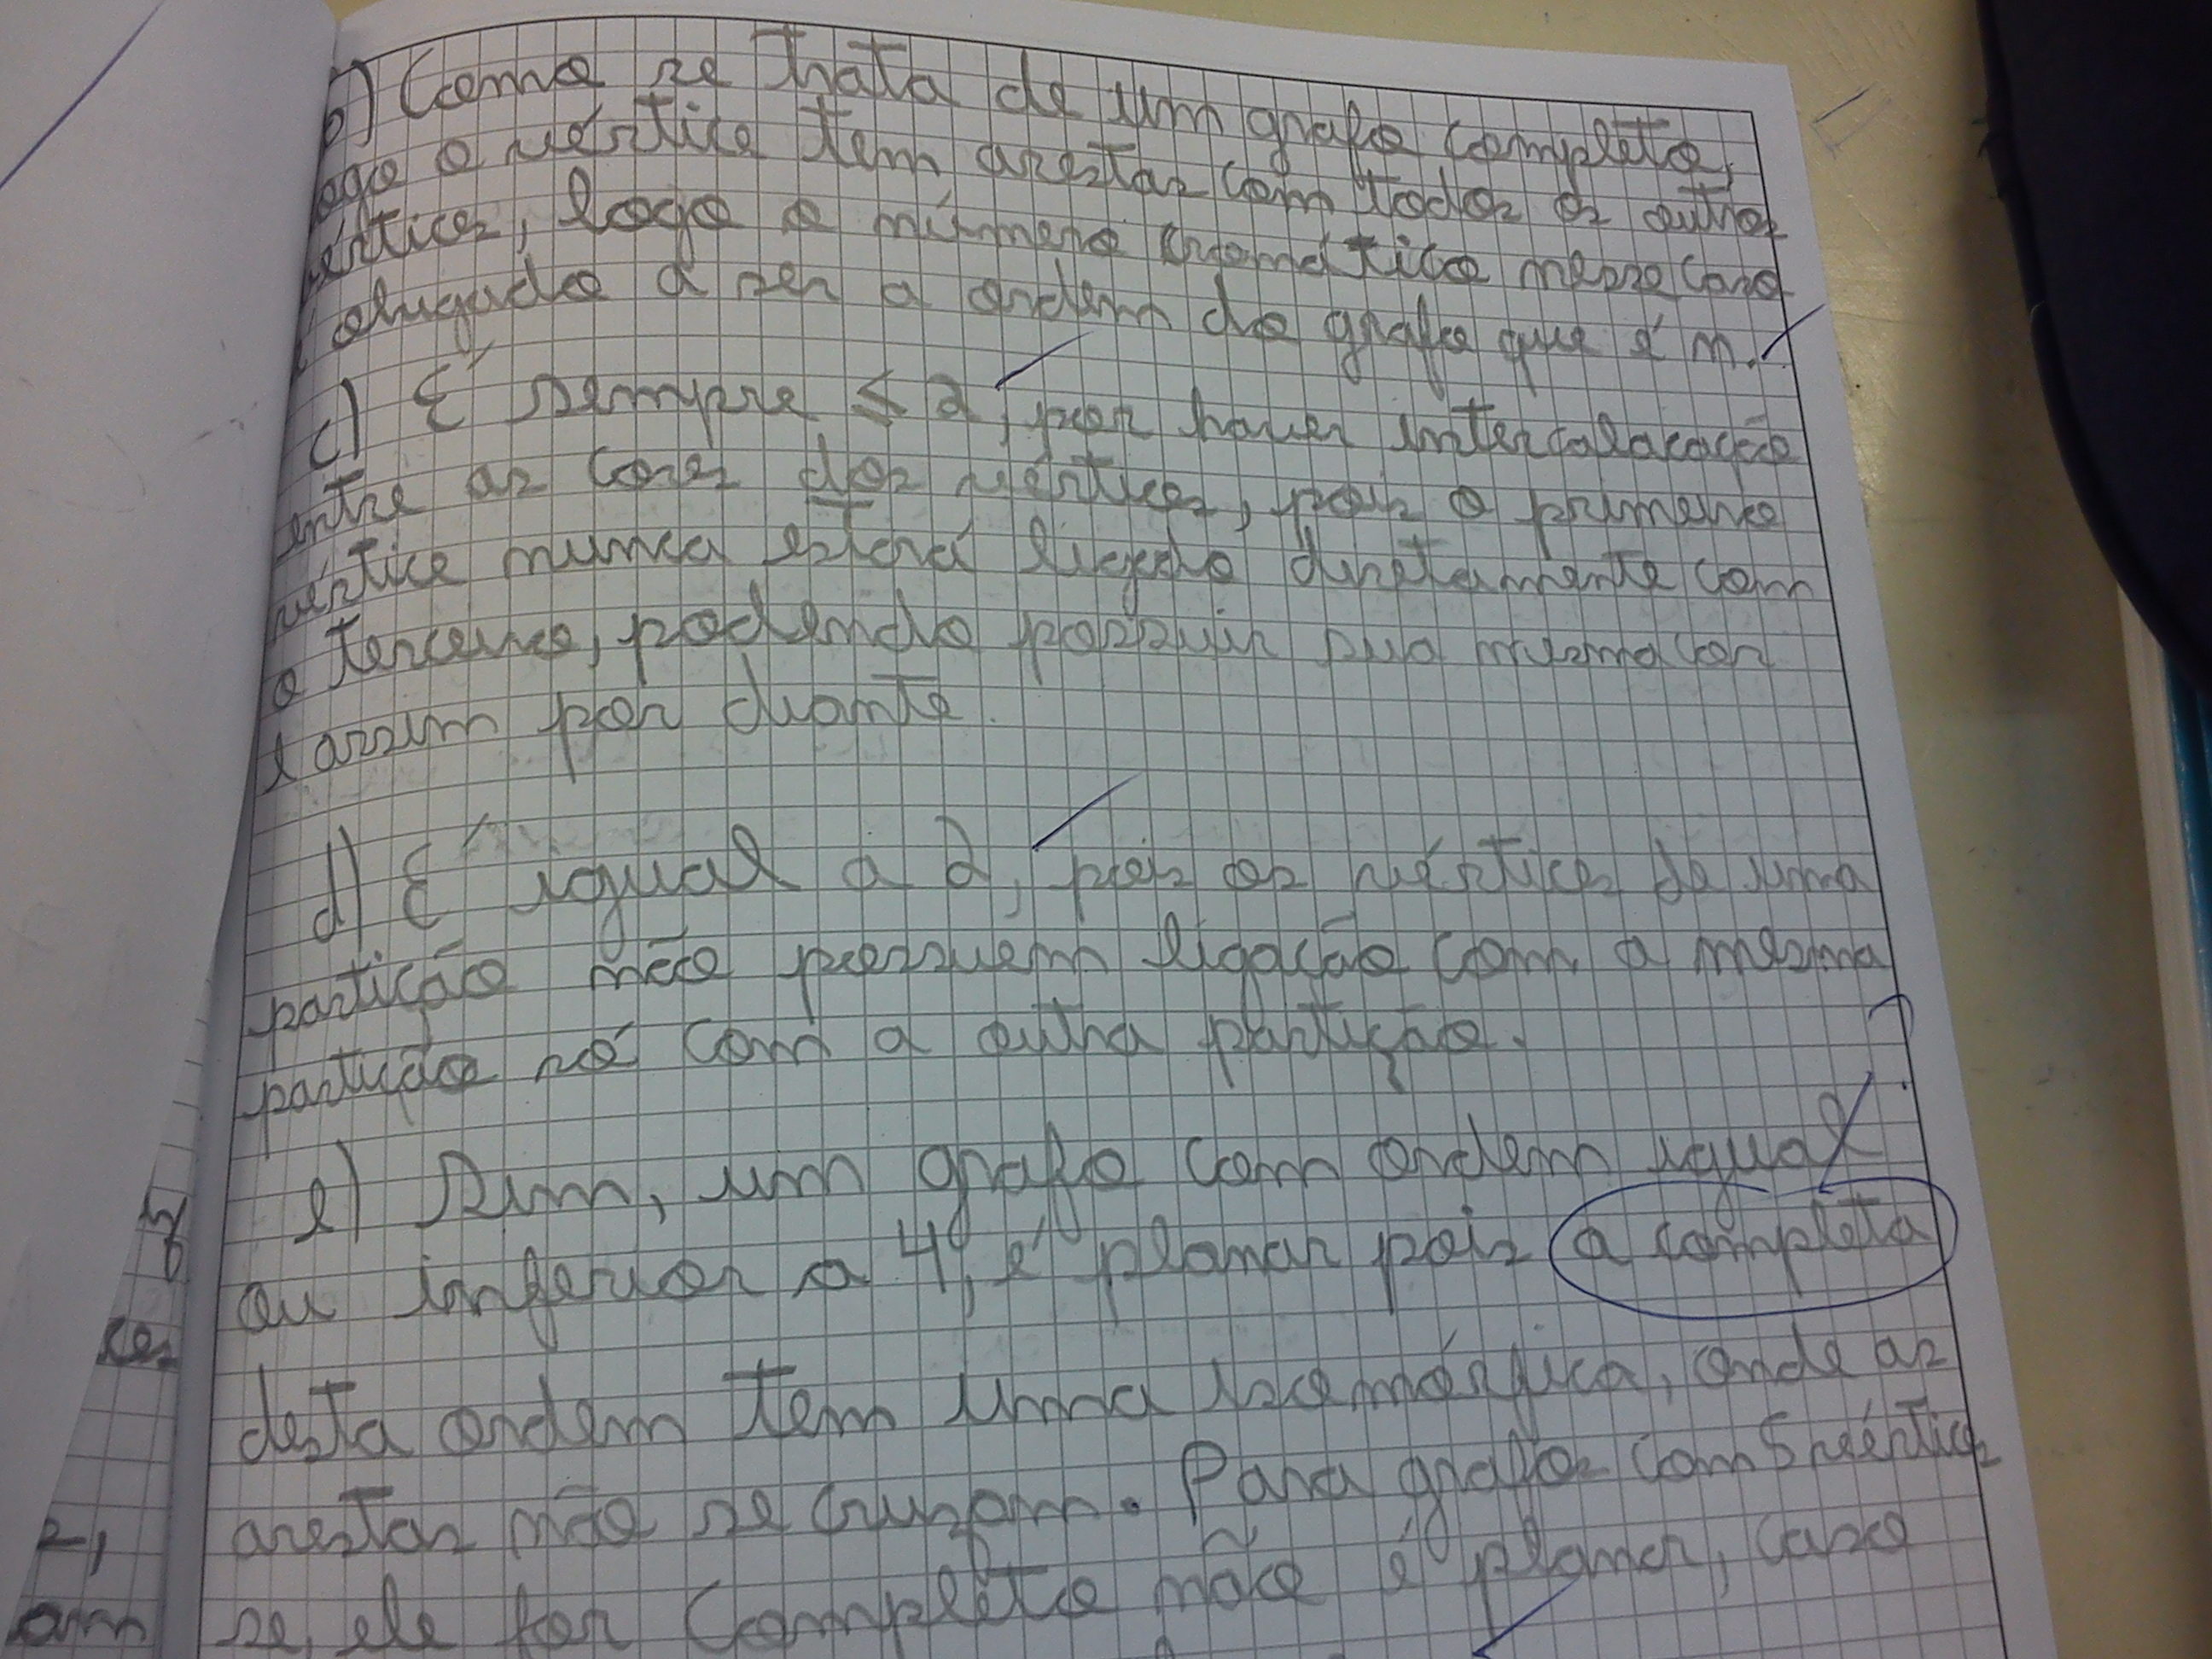 b) Como se trata de um grafo completo,
logo o vértice tem arestas com todos os outros
vértices, logo o número cromático nesse caso
obrigado a ser a ordem do grafo que é n.
c) É sempre ≤ 2, por haver intercalacação
entre as cores dos vértices, pois o primeiro
vértice nunca estará ligado diretamente com
o terceiro, podendo possuir sua mesma cor
e assim por diante.
d) É igual a 2, pois os vértices de uma
partição não possuem ligação com a mesma
partição só com a outra partição.
e) Sim, um grafo com ordem igual
ou inferior a 4, é planar pois a completa
desta ordem tem uma isomórfica, onde as
arestas não se cruzam. Para grafos com 5 vértices
se ele for completo não é planar, caso